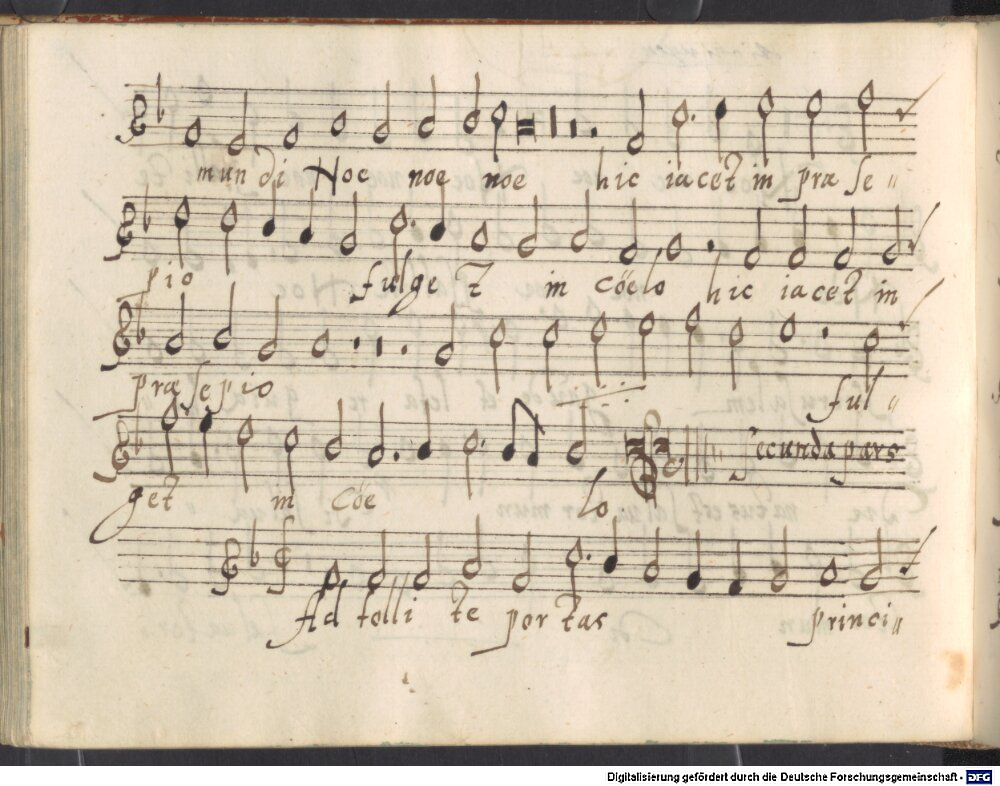 mundi Noe noe noe hic iacet in præ se〃
pio fulget in cöelo hic iacet in
præsepio ful〃
get in cöe lo Secunda pars
Ad tolli te portas princi〃
Digitalisierung gefördert durch die Deutsche Forschungsgemeinschaft - DFG